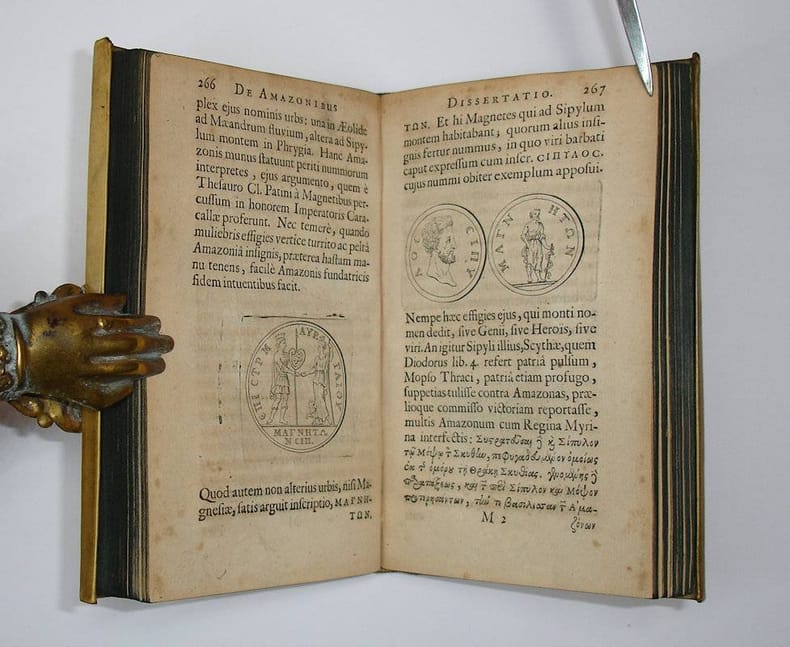 266 DE AMAZONIBUS
plex ejus nominis urbs: una in Æolide
ad Mæandrum fluvium, altera ad Sipy-
lum montem in Phrygia. Hanc Ama-
zonis munus ſtatuunt periti nummorum
interpretes, ejus argumento, quem è
Theſauro Cl. Patini à Magnetibus per-
cuſſum in honorem Imperatoris Cara-
callæ proferunt. Nec temerè, quando
muliebris effigies vertice turrito ac peltâ
Amazoniâ inſignis, præterea haſtam ma-
nu tenens, facilè Amazonis fundatricis
fidem intuentibus facit.
ΕΠΙ ΣΤΡΜ ΑΥΡ ΓΑΙΟΥ
ΜΑΓΝΗΤΩ
Ν ΣΙΠ.
Quod autem non alterius urbis, niſi Ma-
gneſiæ, ſatis arguit inſcriptio, ΜΑΓΝΗ-
ΤΩΝ.
DISSERTATIO. 267
ΤΩΝ. Et hi Magnetes qui ad Sipylum
montem habitabant; quorum alius inſi-
gnis fertur nummus, in quo viri barbati
caput expreſſum cum inſcr. CΙΠΥΛΟC.
cujus nummi obiter exemplum appoſui.
ΛΟC CΙΠΥ
ΜΑΓΝ ΗΤΩΝ
Nempe hæc effigies ejus, qui monti no-
men dedit, ſive Genii, ſive Herois, ſive
viri. An igitur Sipyli illius, Scythæ, quem
Diodorus lib. 4. refert patriâ pulſum,
Mopſo Thraci, patriâ etiam profugo,
ſuppetias tuliſſe contra Amazonas, præ-
lioque commiſſo victoriam reportaſſe,
multis Amazonum cum Regina Myri-
na interfectis: Σίπυλον
Σκυθίω, ὁμοίως
Θρᾴκη Σκυθίας.
Σίπυλον καὶ Μόψον
βασίλισσαν Ἀμα-
M 2 ζόνων